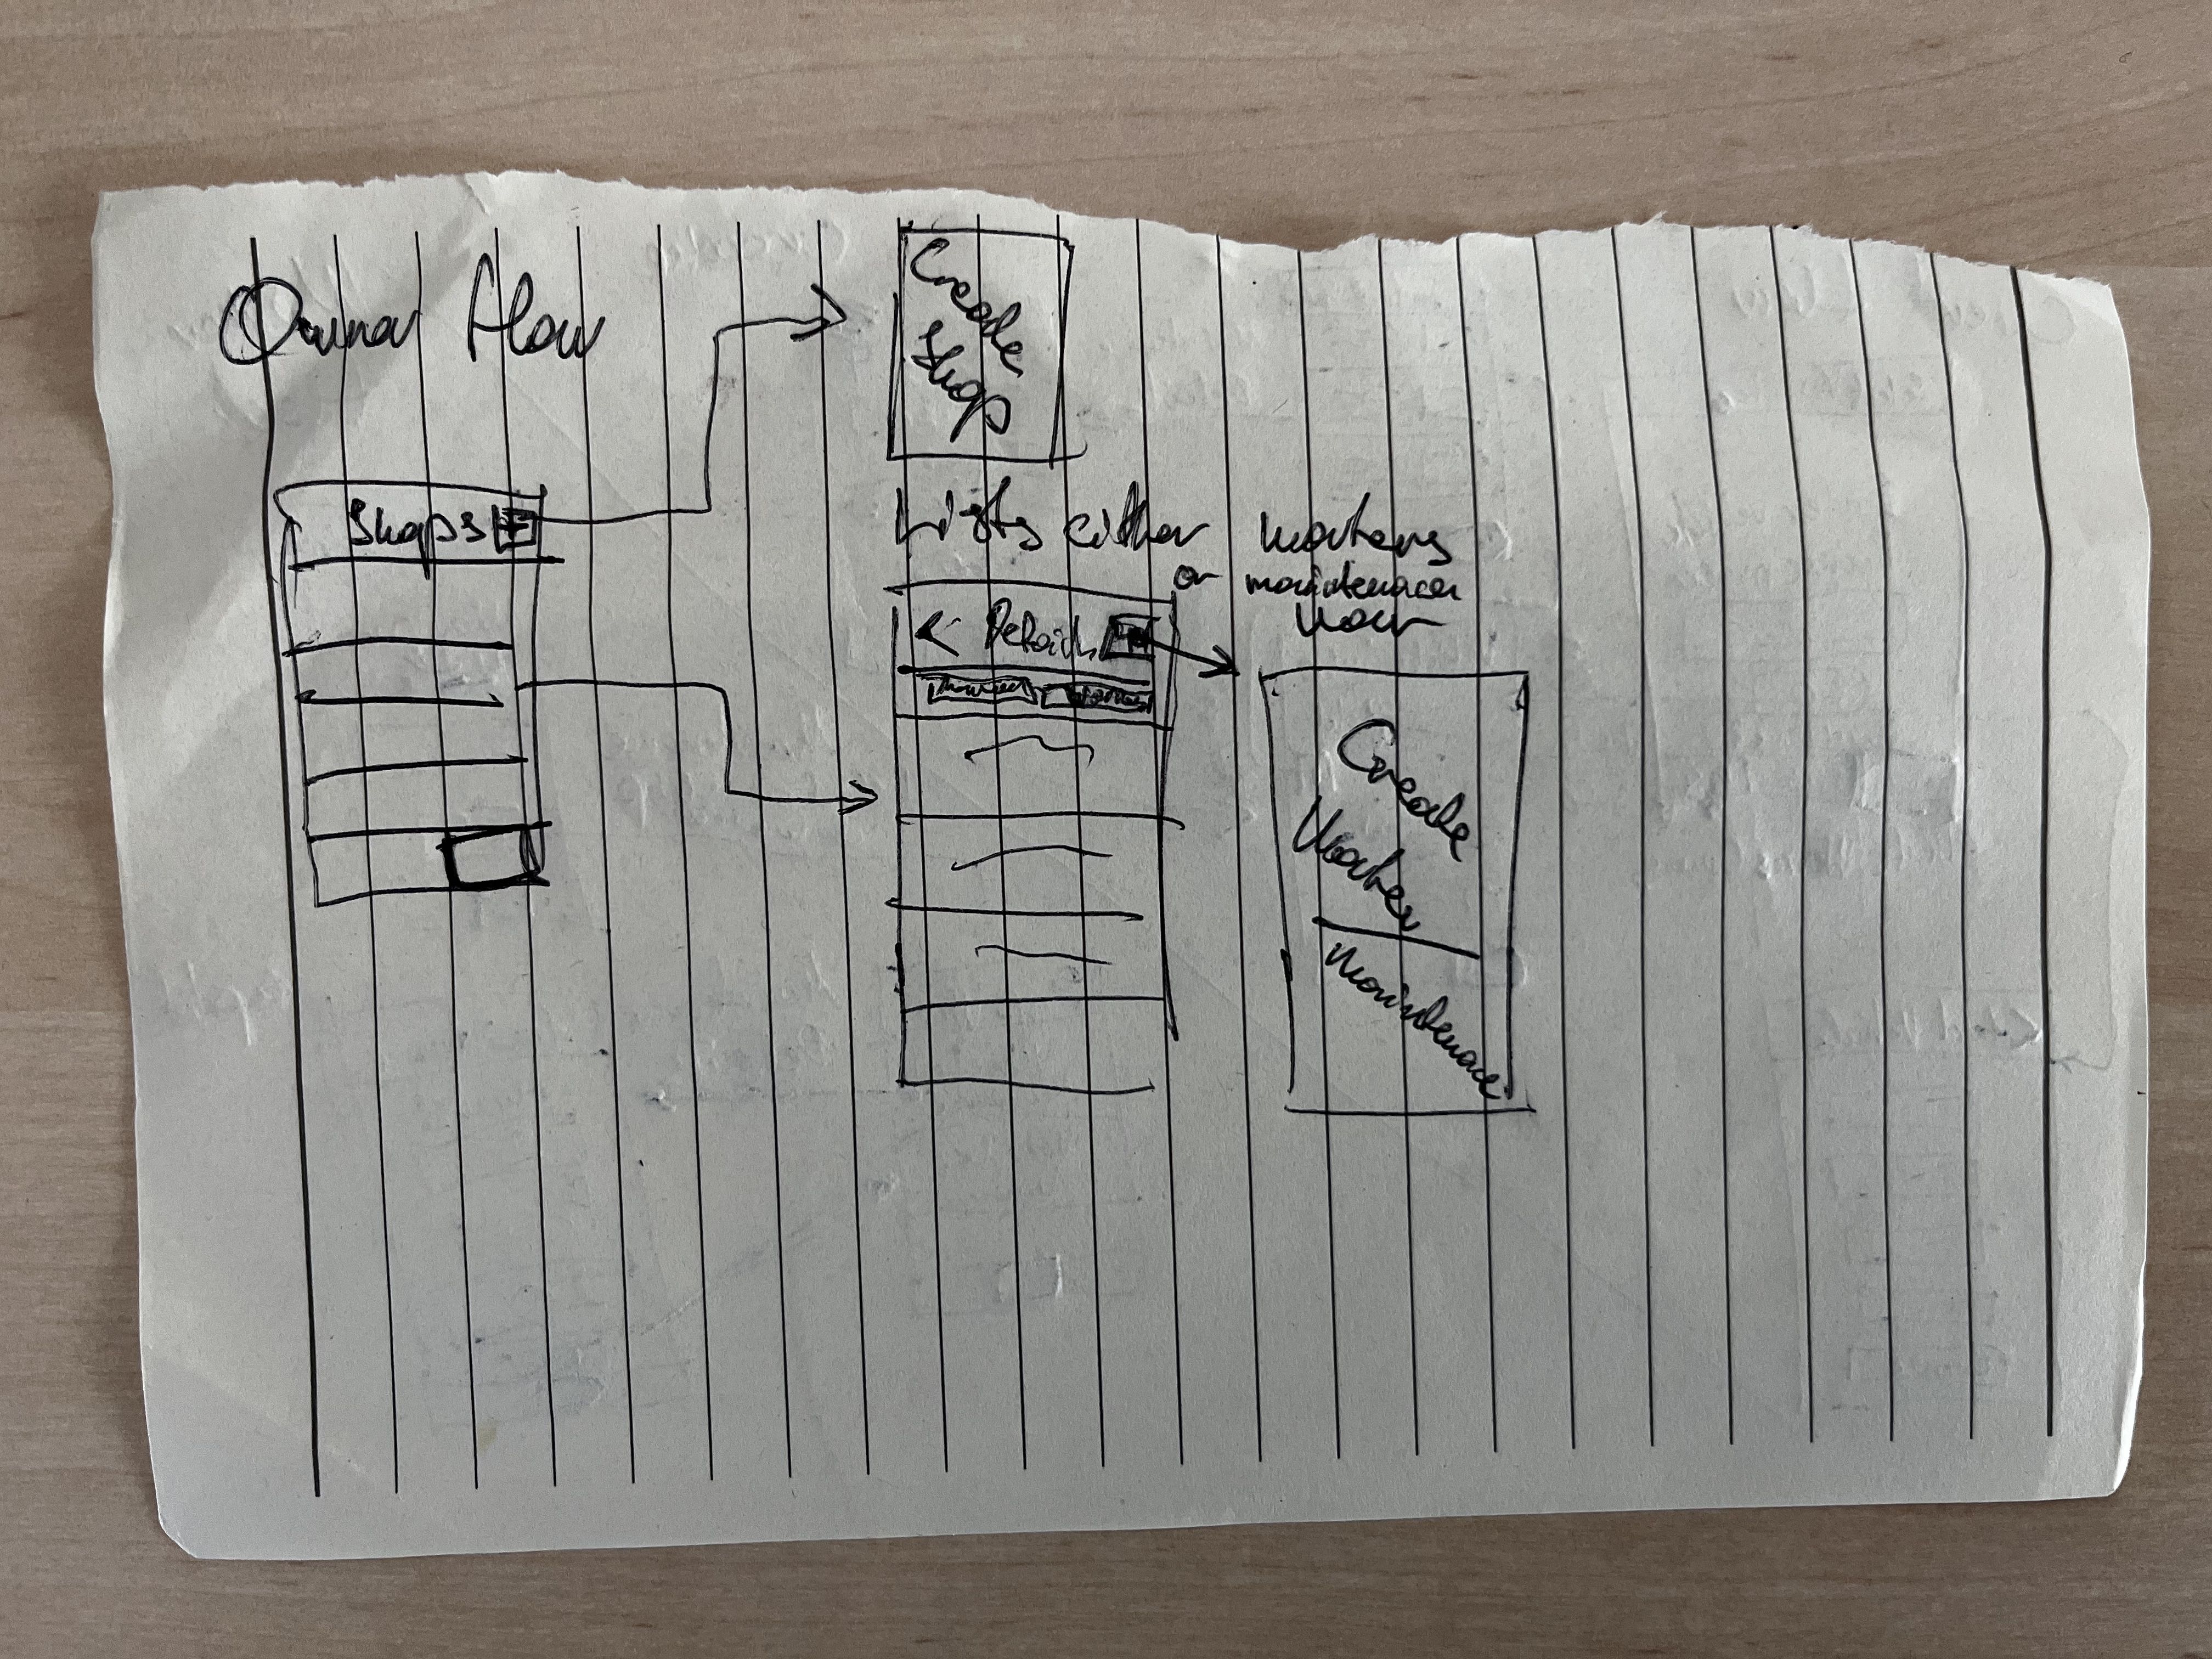 Owner flow
Create
Shop
Shops +
Lists either workers
or maintenance
< Details +
Create
Worker
Maintenace